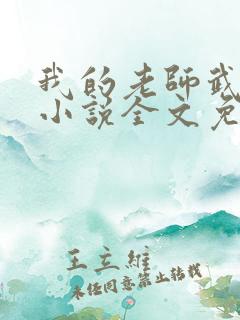 我的老师武
小说全文免
王立维
未经同意禁止转载